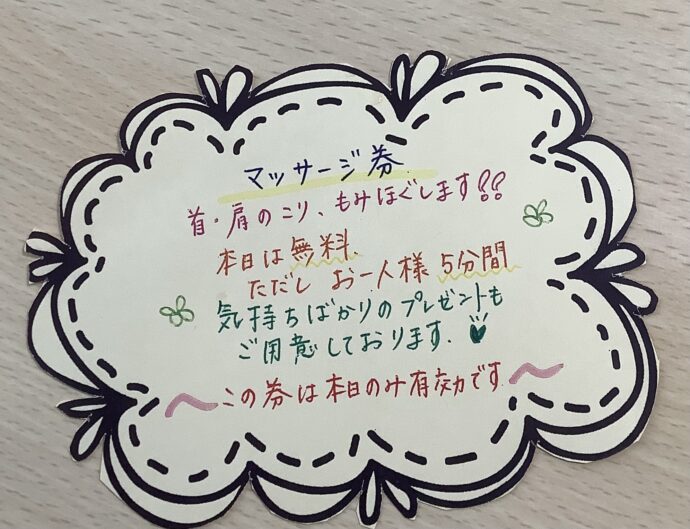 マッサージ券
首・肩のこり、もみほぐします!!
本日は無料
ただし お一人様 5分間
気持ちばかりのプレゼントも
ご用意しております.
〜この券は本日のみ有効です〜